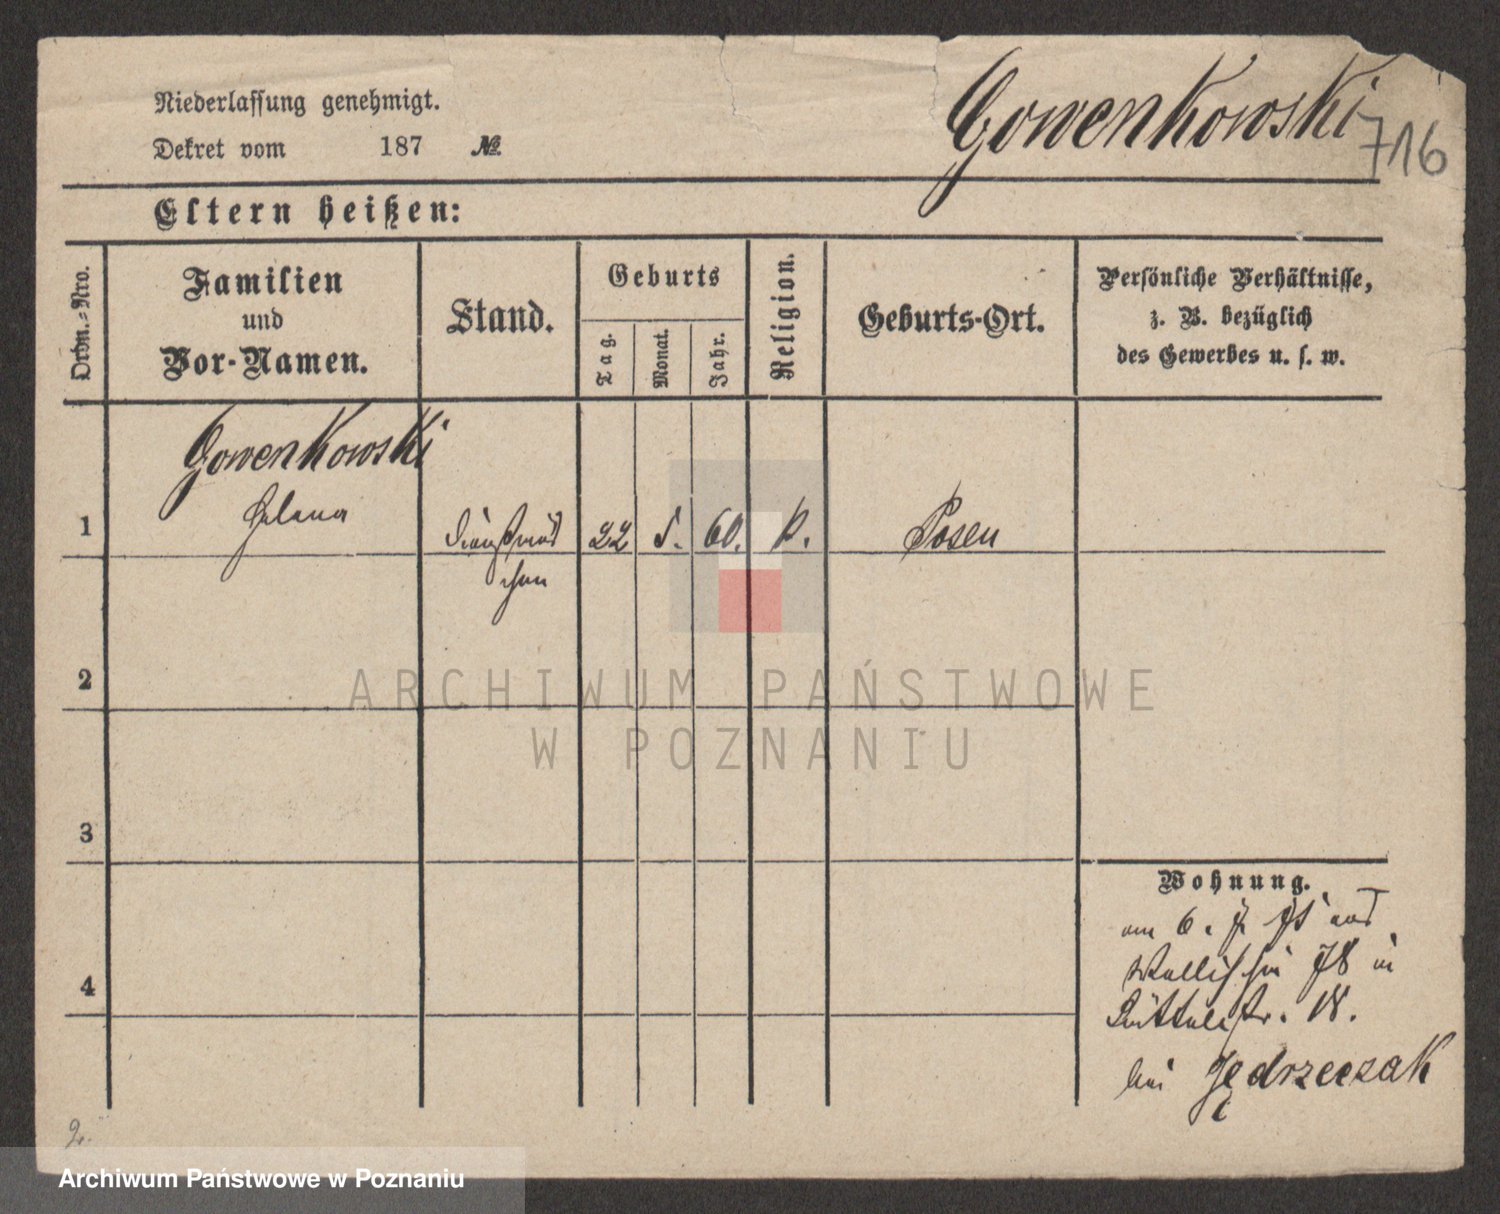 Niederlassung genehmigt.
Dekret vom 187 No.
Gowenkowski
716
Eltern heißen:
Ordn.-Nro.
Familien
und
Vor-Namen.
Stand.
Geburts
Tag.
Monat.
Jahr.
Religion.
Geburts-Ort.
Persönliche Verhältnisse,
z. B. bezüglich
des Gewerbes u. s. w.
Gowenkowski
1 Helena Dienstmäd 22 5. 60. k. Posen
chen
2
3
4
Wohnung.
am 6. 7. 75 aus
Wallischei 78 in
Büttelstr. 18.
bei Jędrzeczak
2.
ARCHIWUM PAŃSTWOWE
W POZNANIU
Archiwum Państwowe w Poznaniu